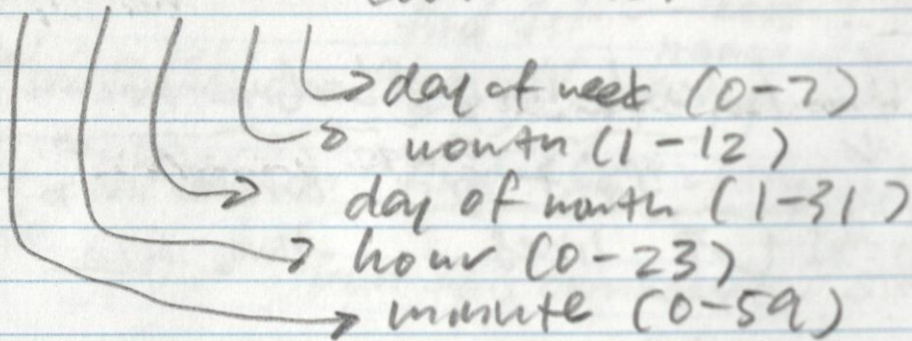 day of week (0-7)
month (1-12)
day of month (1-31)
hour (0-23)
minute (0-59)